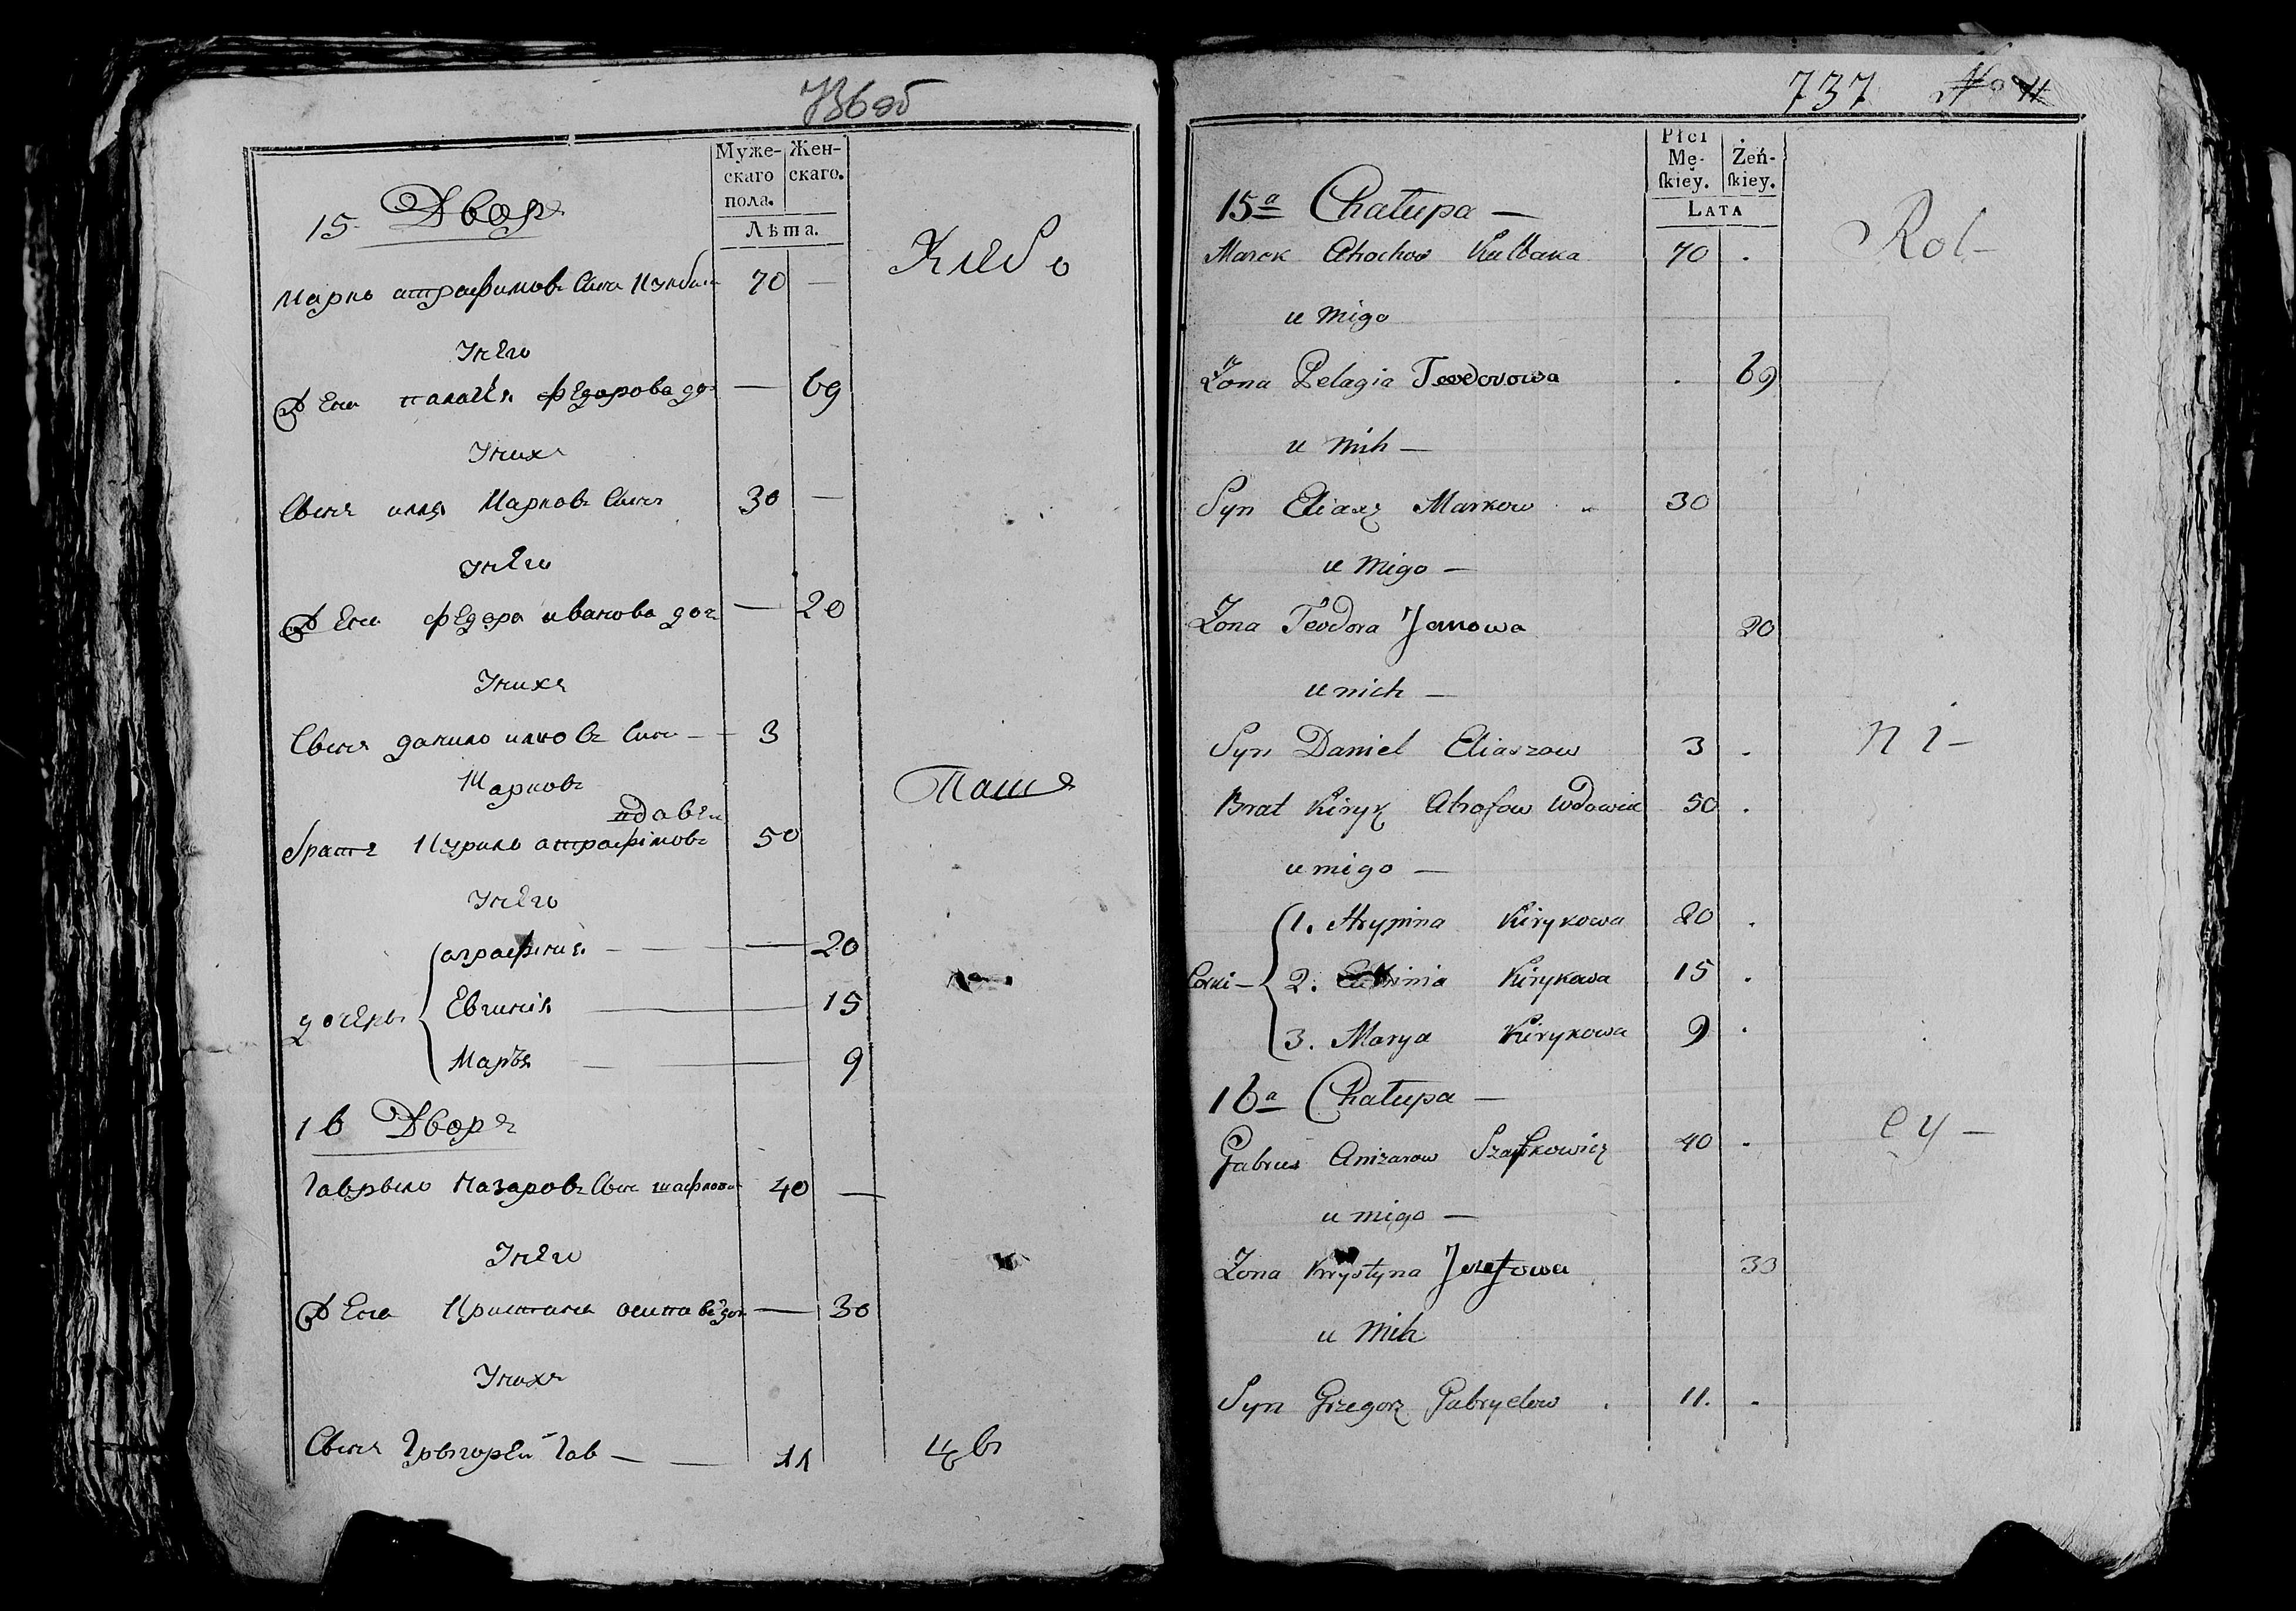 736об
Муже-
скаго
пола.
Жен-
скаго.
Лѣта.
15 Дворъ
Хлебо
Марко атрафимовъ Синъ Кулба 70 —
Унего
Жена палагѣя федорова до — 69
Унихъ
Свинъ илля Марковъ Синъ 30 —
Унего
Жена федора иванова доч — 20
Унихъ
Свинъ данило илковъ Синъ — 3
Марковъ
вдавец
Паше
братъ Кырило атрафімовъ 50
Унего
дочерь
аграфина — 20
Евгинія — 15
Маръя — 9
16 Дворъ
Гаврыло Назаровъ Свинъ шафкови 40 —
Унего
Жена Криштина осипова доч — 30
Унихъ
Свинъ Грыгорей Гав — 11
цы
737 No 11
Płci
Mę-
ſkiey.
Żeń-
ſkiey.
LATA
15ª Chałupa —
Rol-
Marek Atrochow Kulbaka 70 .
u niego
Żona Pelagia Teodorowa . 69
u nich —
Syn Eliasz Markow 30
u niego —
Żona Teodora Janowa 20
u nich —
Syn Daniel Eliaszow 3 .
ni-
Brat Kiryk Atrofow Wdowiec 50 .
u niego —
Corki —
1. Hrypina Kirykowa 20 .
2. Kirykowa 15 .
3. Marya Kirykowa 9 .
16ª Chałupa —
ey —
Gabriel Anizarow Szafkowicz 40 .
u niego —
Żona Krystyna Jozefowa 30
u nich
Syn Grzegorz Gabryelow . 11. .